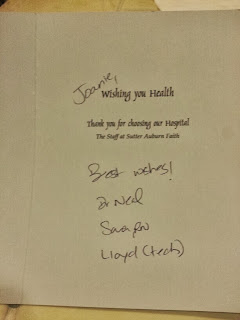 Joanie,
Wishing you Health
Thank you for choosing our Hospital
The Staff at Sutter Auburn Faith
Best wishes!
Dr Neal
Lloyd (tech)